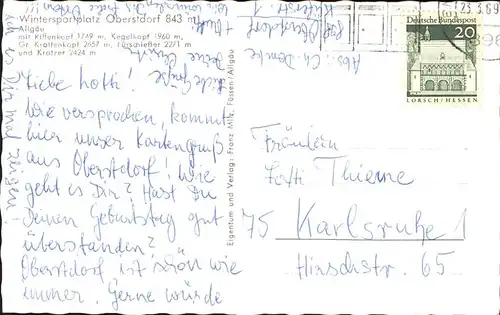 Wintersportplatz Oberstdorf 843 m
Allgäu
mit Riffenkopf 1749 m, Kegelkopf 1960 m,
Gr. Krottenkopf 2657 m, Fürschießer 2271 m
und Kratzer 2424 m
Liebe Lotti!
Wie versprochen, kommt
hier unser Kartengruß
aus Oberstdorf! Wie
geht es Dir? Hast Du
Deinen Geburtstag gut
überstanden?
Oberstdorf ist schön wie
immer. Gerne würde
ich es Dir mal zeigen!
Liebe Grüße
Deine Christl
Abs. Ch. Denke
Oberstdorf
Eigentum und Verlag: Franz Milz, Füssen/Allgäu
23.3.69
Deutsche Bundespost
20
LORSCH/HESSEN
Fräulein
Lotti Thieme
75 Karlsruhe 1
Hirschstr. 65